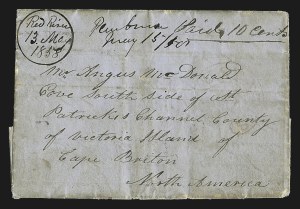 Red River
13 Mc
1858
Pembina Paid 10 Cents
May 15/58
Mr Angus McDonald
Cove South side of St
Patricks Channel County
of Victoria Island of
Cape Breton
North America